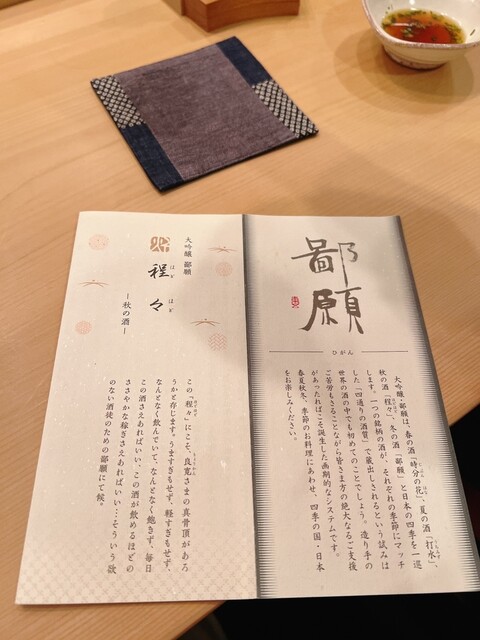 鄙願
ひがん
大吟醸・鄙願は、春の酒「時分の花」、夏の酒「打水」、
秋の酒「程々」、冬の酒「鄙願」と日本の四季を一巡
します。一つの銘柄の酒が、それぞれの季節にマッチ
した「四通りの酒質」で蔵出しされるという試みは
世界の酒の中でも初めてのことでしょう。造り手の
ご苦労もさることながら皆さま方の絶大なるご支援
があったればこそ誕生した画期的なシステムです。
春夏秋冬、季節のお料理にあわせ、四季の国・日本
をお楽しみください。
大吟醸 鄙願
程々
ほど ほど
―秋の酒―
この「程々」にこそ、良寛さまの真骨頂があろ
うかと存じます。うますぎもせず、軽すぎもせず、
なんとなく飲んでいて、なんとなく飽きず、毎日
この酒さえあればいい、この酒が飲めるほどの
ささやかな稼ぎさえあればいい…そういう欲
のない酒徒のための鄙願にて候。